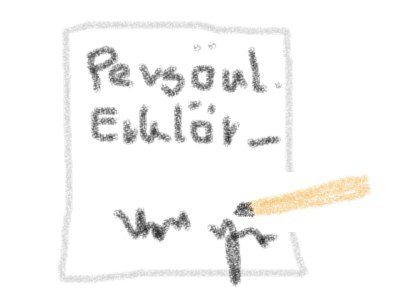 Persönl.
Erklär_